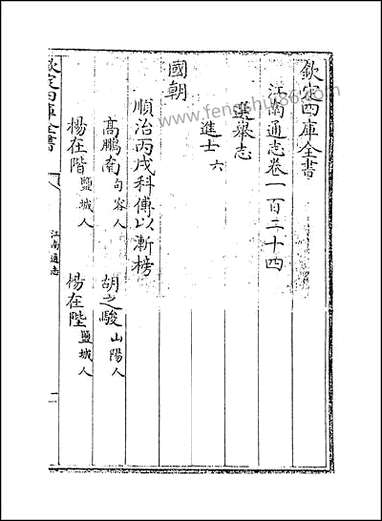 欽定四庫全書
江南通志卷一百二十四
選舉志
進士六
國朝
順治丙戌科傅以漸榜
高鵬南句容人 胡之駿山陽人
楊在階鹽城人 楊在陛鹽城人
欽定四庫全書 江南通志 一
www.fengshu86.com